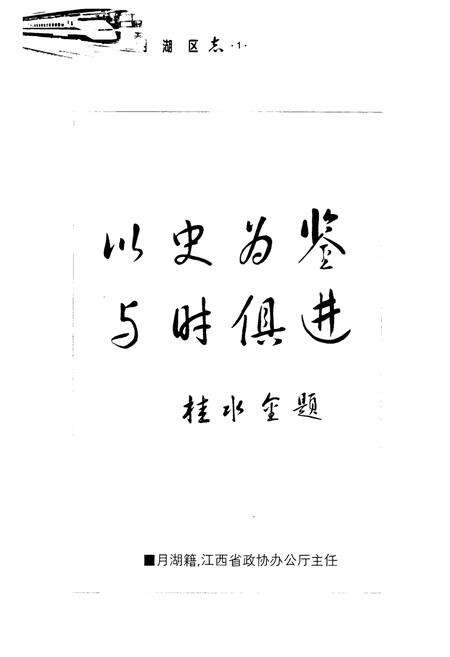 月湖区志·1·
以史为鉴
与时俱进
桂水金题
■月湖籍,江西省政协办公厅主任